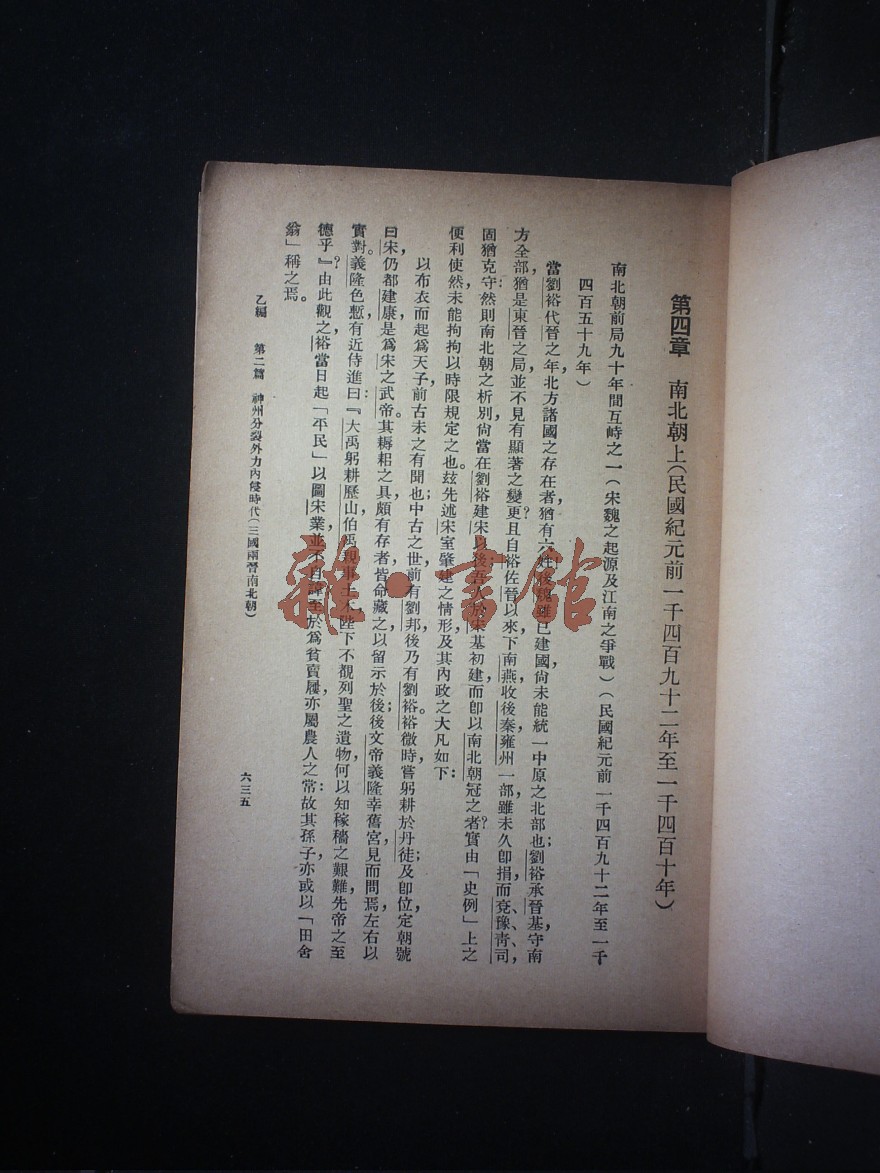 第四章　南北朝上（民國紀元前一千四百九十二年至一千四百十年）
南北朝前局九十年間互峙之一（宋魏之起源及江南之爭戰）（民國紀元前一千四百九十二年至一千
四百五十九年）
當劉裕代晉之年，北方諸國之存在者，猶有六姓，後魏雖已建國，尙未能統一中原之北部也；劉裕承晉基，守南
方全部，猶是東晉之局，並不見有顯著之變更？且自裕佐晉以來，下南燕，收後秦，雍州一部，雖未久卽捐，而兗、豫、靑、司，
固猶克守；然則南北朝之析別，尙當在劉裕建宋以後，吾人於宋基初建，而卽以南北朝冠之者？實由「史例」上之
便利使然，未能拘拘以時限規定之也。玆先述宋室肇建之情形，及其內政之大凡如下：
以布衣而起爲天子，前古未之有聞也；中古之世，前有劉邦，後乃有劉裕。裕微時，嘗躬耕於丹徒；及卽位，定朝號
曰宋，仍都建康，是爲宋之武帝。其耨耜之具，頗有存者，皆命藏之，以留示於後；後文帝義隆幸舊宮，見而問焉，左右以
實對。義隆色慙，有近侍進曰：『大禹躬耕歷山，伯禹親事土木，陛下不覩列聖之遺物，何以知稼穡之艱難，先帝之至
德乎？』由此觀之，裕當日起「平民」以圖宋業，並不自諱，至於爲貧賣屨，亦屬農人之常；故其孫子亦或以「田舍
翁」稱之焉。
乙編　第二篇　神州分裂外力內侵時代（三國兩晉南北朝）
六三五
雜·書館